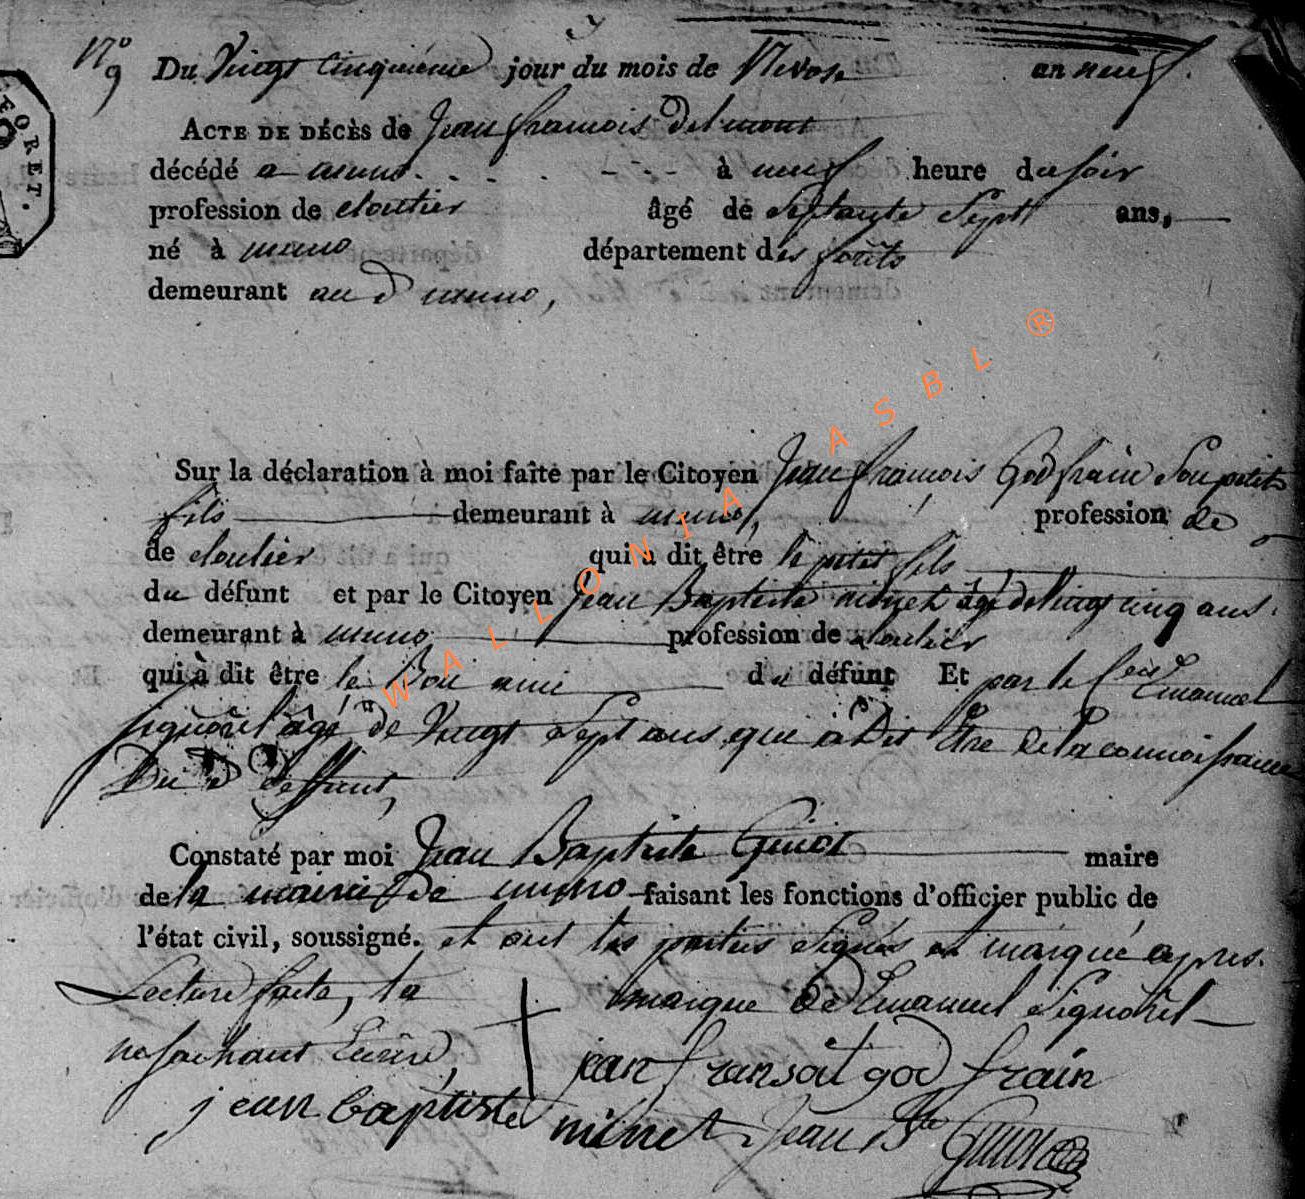 N° 9 Du Vingt Cinquiéme jour du mois de Nivose an neuf.
ACTE DE DÉCÈS de Jean francois Delmont
décédé a muno - - - - - à neuf heure du soir
profession de cloutier âgé de Septante Sept ans,
né à muno département des forêts
demeurant au d muno,
Sur la déclaration à moi faite par le Citoyen Jean francois Godfrain Son petit
fils demeurant à muno, profession de
de cloutier qui a dit être le petit fils
du défunt et par le Citoyen Jean Baptiste âgé de Vingt cinq ans.
demeurant à muno profession de cloutier
qui à dit être le Bon ami du défunt Et par le Cen Emanuel
Signorel âgé de Vingt Sept ans qui à Dit Etre de la connoissance
Du d deffunt,
Constaté par moi Jean Baptiste Guiot maire
de la mairie de muno faisant les fonctions d'officier public de
l'état civil, soussigné. et ont les parties Signés et marqué apres
Lecture faite, la marque de Emanuel Signorel
ne sachant Ecrire,
jean fransoit god frain
jean baptiste Jean Bte Guiot
WALLONIA ASBL ®
EQRET.